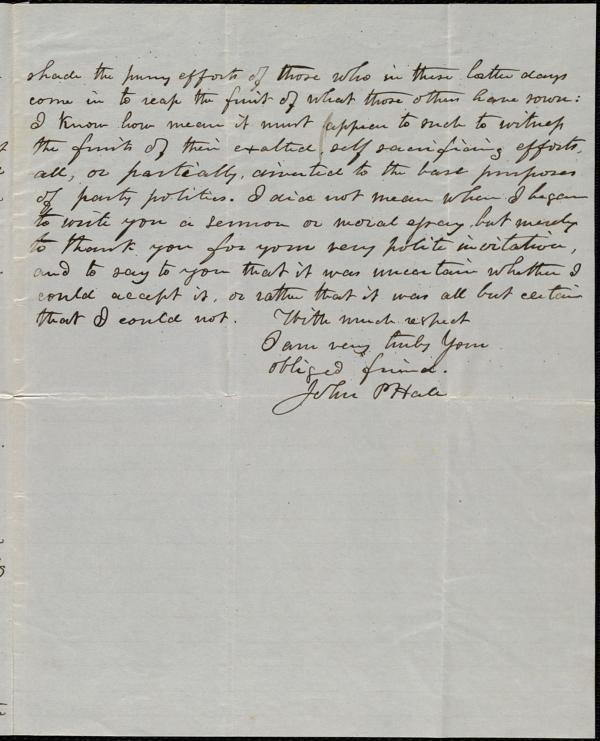 shade the puny efforts of those who in these latter days
come in to reap the fruit of what those others have sown:
I know how mean it must appear to such to witness
the fruits of their exalted, self sacrificing efforts,
all, or partially, diverted to the base purposes
of party politics. I did not mean when I began
to write you a sermon or moral essay, but merely
to thank you for your very polite invitation,
and to say to you that it was uncertain whether I
could accept it, or rather that it was all but certain
that I could not. With much respect
I am very truly Your
obliged friend.
John P Hale